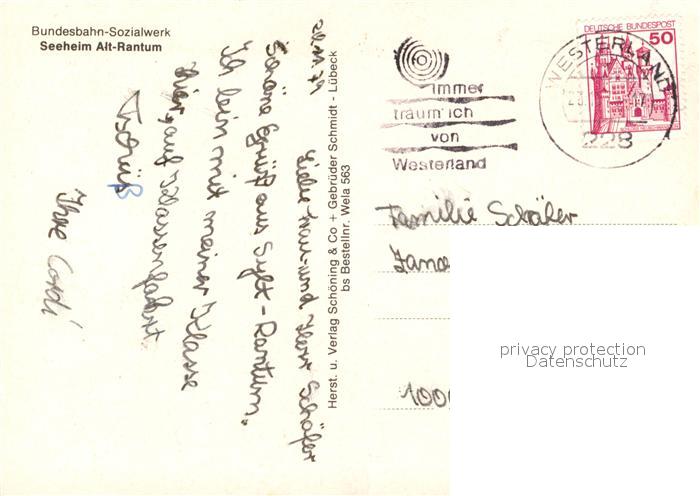 Bundesbahn-Sozialwerk
Seeheim Alt-Rantum
Liebe Frau und Herr Schäfer
Schöne Grüße aus Sylt-Rantum.
Ich bin mit meiner Klasse
hier auf Klassenfahrt
Tschüß
Ihre Cordi
Herst. u. Verlag Schöning & Co + Gebrüder Schmidt - Lübeck
bs Bestellnr. Wela 563
immer
träum' ich
von
Westerland
WESTERLAND
228
DEUTSCHE BUNDESPOST
50
Familie Schäfer
privacy protection
Datenschutz